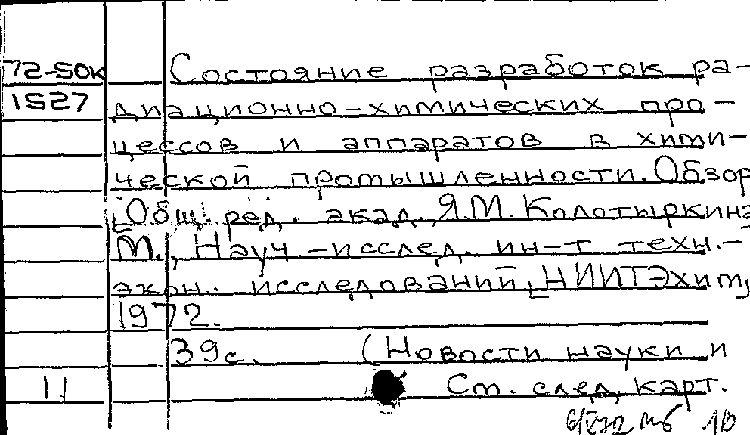 72-50к Состояние разработок ра-
1527 диационно-химических про-
цессов и аппаратов в хими-
ческой промышленности. Обзор
[Общ. ред. акад. Я.М. Колотыркина
М., Науч-исслед. ин-т техн.-
экон. исследований, [НИИТЭхим,
1972.
39с. (Новости науки и
11 См. след. карт.